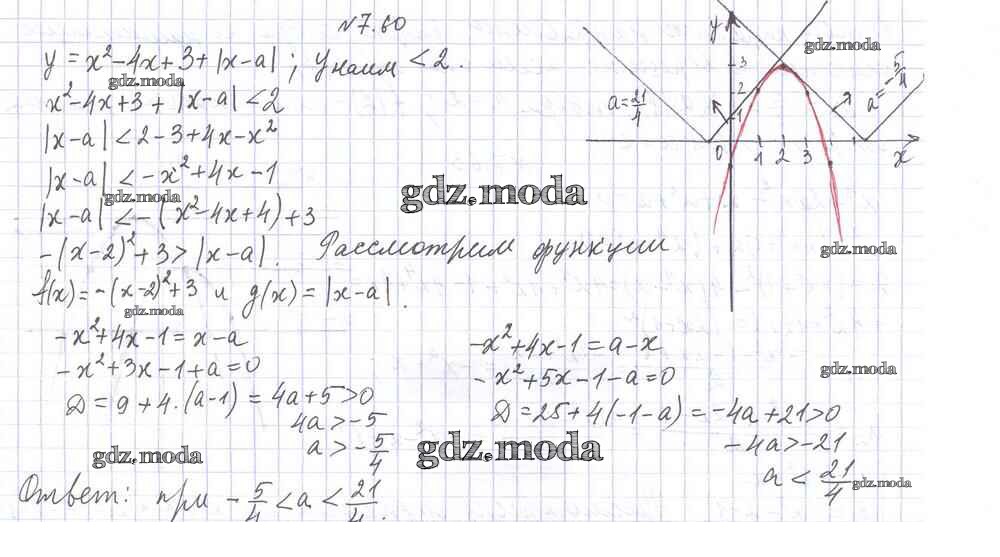 №7.60
y = x² - 4x + 3 + |x-a| ; yнаим < 2.
x² - 4x + 3 + |x-a| < 2
|x-a| < 2 - 3 + 4x - x²
|x-a| < -x² + 4x - 1
|x-a| < -(x² - 4x + 4) + 3
-(x-2)² + 3 > |x-a|. Рассмотрим функции
f(x) = -(x-2)² + 3 и g(x) = |x-a|.
-x² + 4x - 1 = x - a
-x² + 3x - 1 + a = 0
D = 9 + 4·(a-1) = 4a + 5 > 0
4a > -5
a > -5/4
-x² + 4x - 1 = a - x
-x² + 5x - 1 - a = 0
D = 25 + 4(-1-a) = -4a + 21 > 0
-4a > -21
a < 21/4
Ответ: при -5/4 < a < 21/4.
y
3
2
1
0 1 2 3 x
a = 21/4
a = -5/4
gdz.moda
gdz.moda
gdz.moda
gdz.moda
gdz.moda
gdz.moda
gdz.moda
gdz.moda
gdz.moda
gdz.moda
gdz.moda